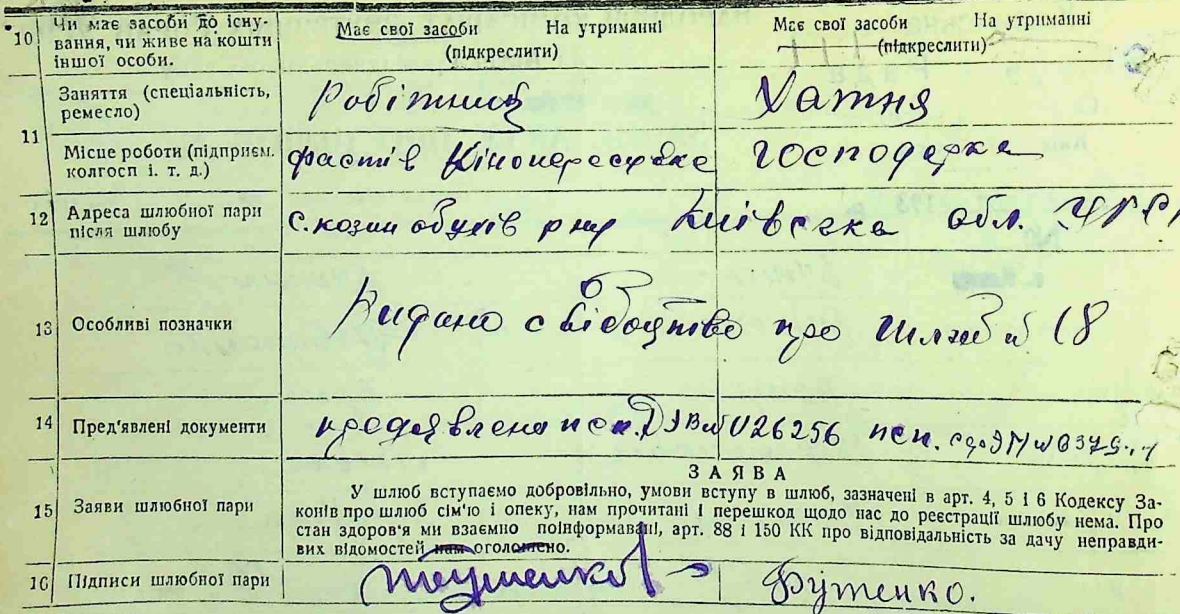 10 Чи має засоби до існу-
вання, чи живе на кошти
іншої особи.
Має свої засоби На утриманні
(підкреслити)
Має свої засоби На утриманні
(підкреслити)
11 Заняття (спеціальність,
ремесло)
Робітник
Хатня
Місце роботи (підприєм.
колгосп і. т. д.)
фастів
господарка
12 Адреса шлюбної пари
після шлюбу
с. козин обухів рну Київська обл. УРСР
13 Особливі позначки
Видано свідоцтво про шлюб № 18
14 Пред'явлені документи
предявлена псп. 026256 псп.
15 Заяви шлюбної пари
ЗАЯВА
У шлюб вступаємо добровільно, умови вступу в шлюб, зазначені в арт. 4, 5 і 6 Кодексу За-
конів про шлюб сім'ю і опеку, нам прочитані і перешкод щодо нас до реєстрації шлюбу нема. Про
стан здоров'я ми взаємно поінформавані, арт. 88 і 150 КК про відповідальність за дачу неправди-
вих відомостей нам оголошено.
16 Підписи шлюбної пари
Бутенко.